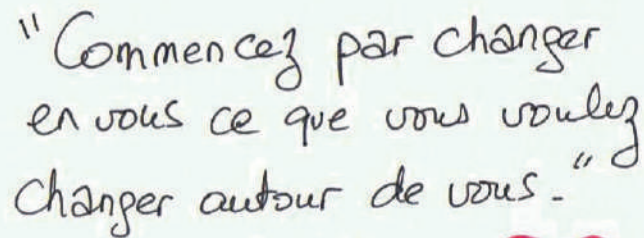 "Commencez par changer
en vous ce que vous voulez
changer autour de vous."